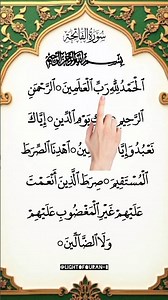 سُورَةُ الْفَاتِحَةِ
بِسْمِ اللَّهِ الرَّحْمَٰنِ الرَّحِيمِ
الْحَمْدُ لِلَّهِ رَبِّ الْعَالَمِينَ ۝ الرَّحْمَٰنِ
الرَّحِيمِ يَوْمِ الدِّينِ ۝ إِيَّاكَ
نَعْبُدُ وَإِيَّاكَ نَسْتَعِينُ ۝ اهْدِنَا الصِّرَاطَ
الْمُسْتَقِيمَ ۝ صِرَاطَ الَّذِينَ أَنْعَمْتَ
عَلَيْهِمْ غَيْرِ الْمَغْضُوبِ عَلَيْهِمْ
وَلَا الضَّالِّينَ ۝